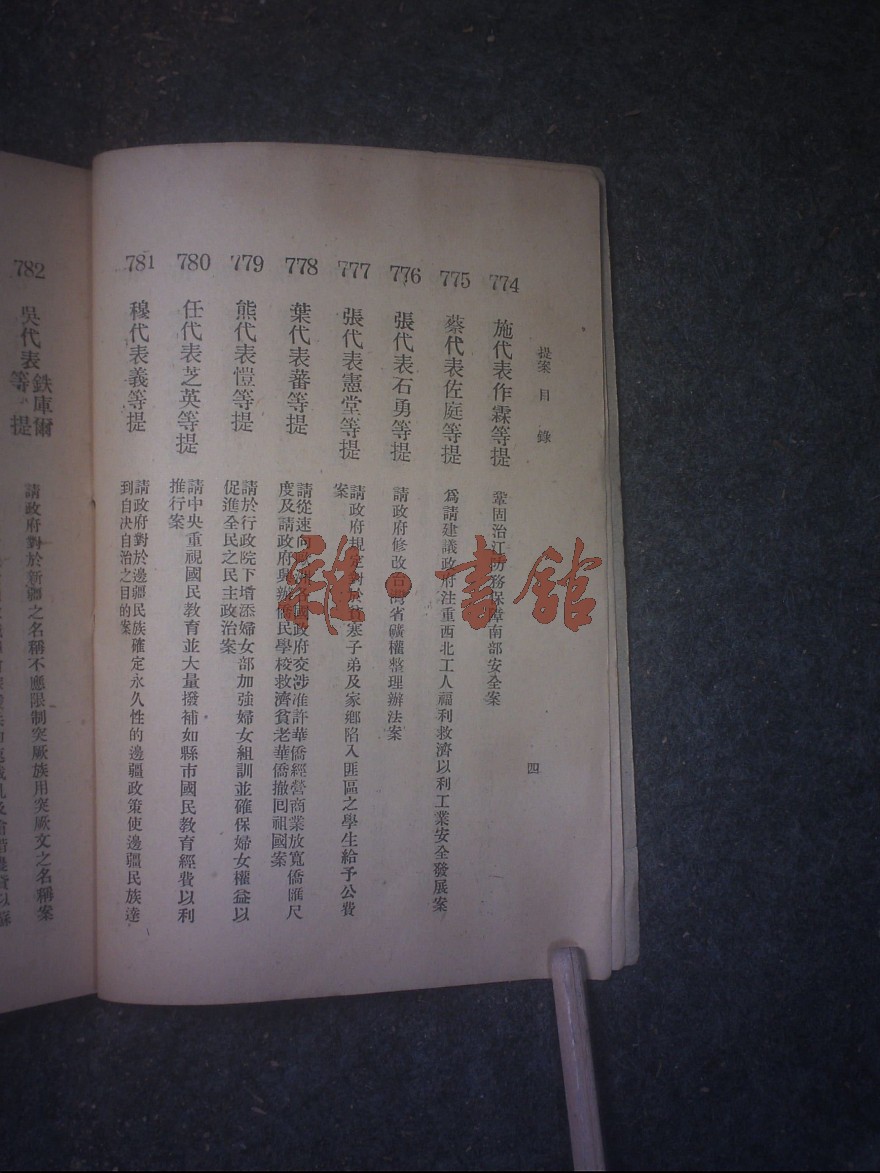 提案目錄
四
774
施代表作霖等提
鞏固治江防務保障南部安全案
775
蔡代表佐庭等提
爲請建議政府注重西北工人福利救濟以利工業安全發展案
776
張代表石勇等提
請政府修改台灣省礦權整理辦法案
777
張代表憲堂等提
請政府規定對於貧寒子弟及家鄉陷入匪區之學生給予公費
案
778
葉代表蕃等提
請從速向 各國政府交涉准許華僑經營商業放寬僑匯尺
度及請政府興辦僑民學校救濟貧老華僑撤囘祖國案
779
熊代表愷等提
請於行政院下增添婦女部加強婦女組訓並確保婦女權益以
促進全民之民主政治案
780
任代表芝英等提
請中央重視國民教育並大量撥補如縣市國民教育經費以利
推行案
781
穆代表義等提
請政府對於邊疆民族確定永久性的邊疆政策使邊疆民族達
到自决自治之目的案
782
吳代表鉄庫爾等提
請政府對於新疆之名稱不應限制突厥族用突厥文之名稱案
雜·書館